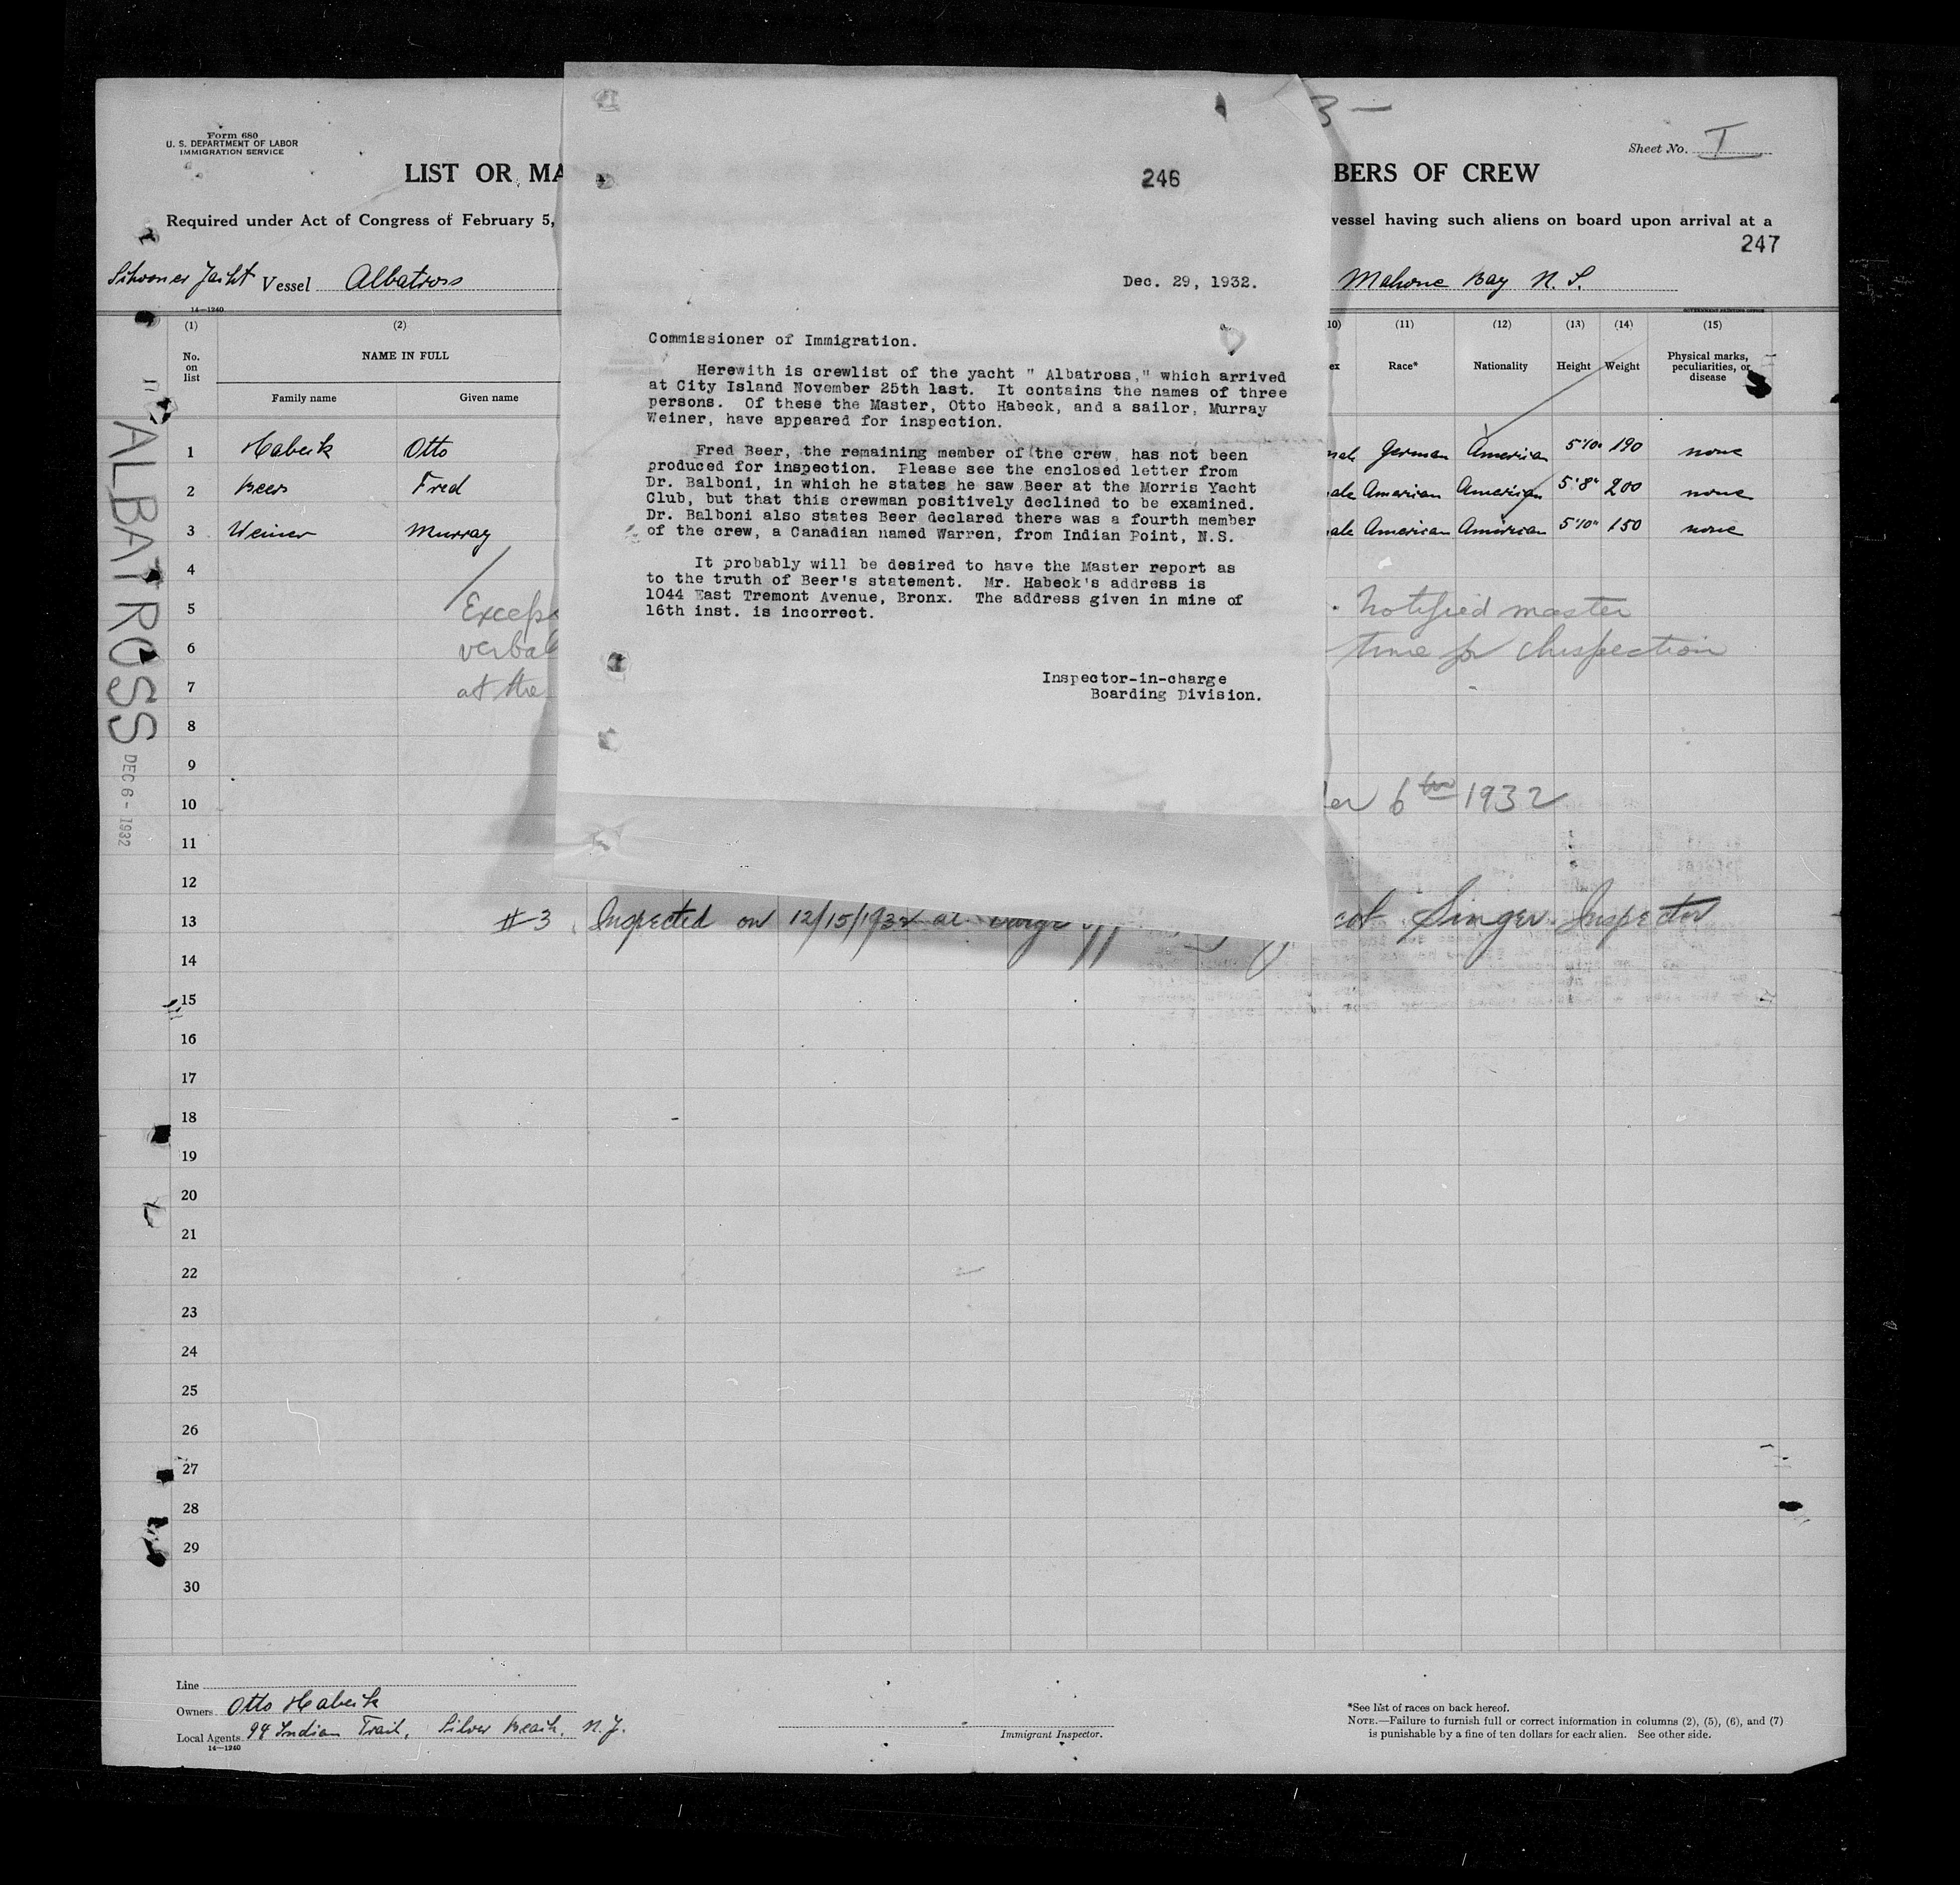 3 —
Form 680
U. S. DEPARTMENT OF LABOR
IMMIGRATION SERVICE
Sheet No. I
LIST OR MA
BERS OF CREW
Required under Act of Congress of February 5,
vessel having such aliens on board upon arrival at a
247
Schooner Yacht Vessel Albatross
Mahone Bay N. S.
14—1240
GOVERNMENT PRINTING OFFICE
(1) (2) 10) (11) (12) (13) (14) (15)
No. on list
NAME IN FULL
Family name Given name
ex Race* Nationality Height Weight Physical marks, peculiarities, or disease
1 Habeck Otto male German American 5'10" 190 none
2 Beer Fred ale American American 5'8" 200 none
3 Weiner Murray ale American American 5'10" 150 none
4
5
6
7
8
9
10
11
12
13
14
15
16
17
18
19
20
21
22
23
24
25
26
27
28
29
30
verbal
at the
. Notified master
time for Inspection
6th 1932
#3 Inspected on 12/15/1932 at
Singer Inspector
ALBATROSS
DEC 6 - 1932
246
Dec. 29, 1932.
Commissioner of Immigration.
Herewith is crewlist of the yacht " Albatross," which arrived
at City Island November 25th last. It contains the names of three
persons. Of these the Master, Otto Habeck, and a sailor, Murray
Weiner, have appeared for inspection.
Fred Beer, the remaining member of the crew, has not been
produced for inspection. Please see the enclosed letter from
Dr. Balboni, in which he states he saw Beer at the Morris Yacht
Club, but that this crewman positively declined to be examined.
Dr. Balboni also states Beer declared there was a fourth member
of the crew, a Canadian named Warren, from Indian Point, N.S.
It probably will be desired to have the Master report as
to the truth of Beer's statement. Mr. Habeck's address is
1044 East Tremont Avenue, Bronx. The address given in mine of
16th inst. is incorrect.
Inspector-in-charge
Boarding Division.
Line
Owners Otto Habeck
Local Agents 94 Indian Trail, Silver Beach, N.Y.
14—1240
Immigrant Inspector.
*See list of races on back hereof.
NOTE.—Failure to furnish full or correct information in columns (2), (5), (6), and (7)
is punishable by a fine of ten dollars for each alien. See other side.